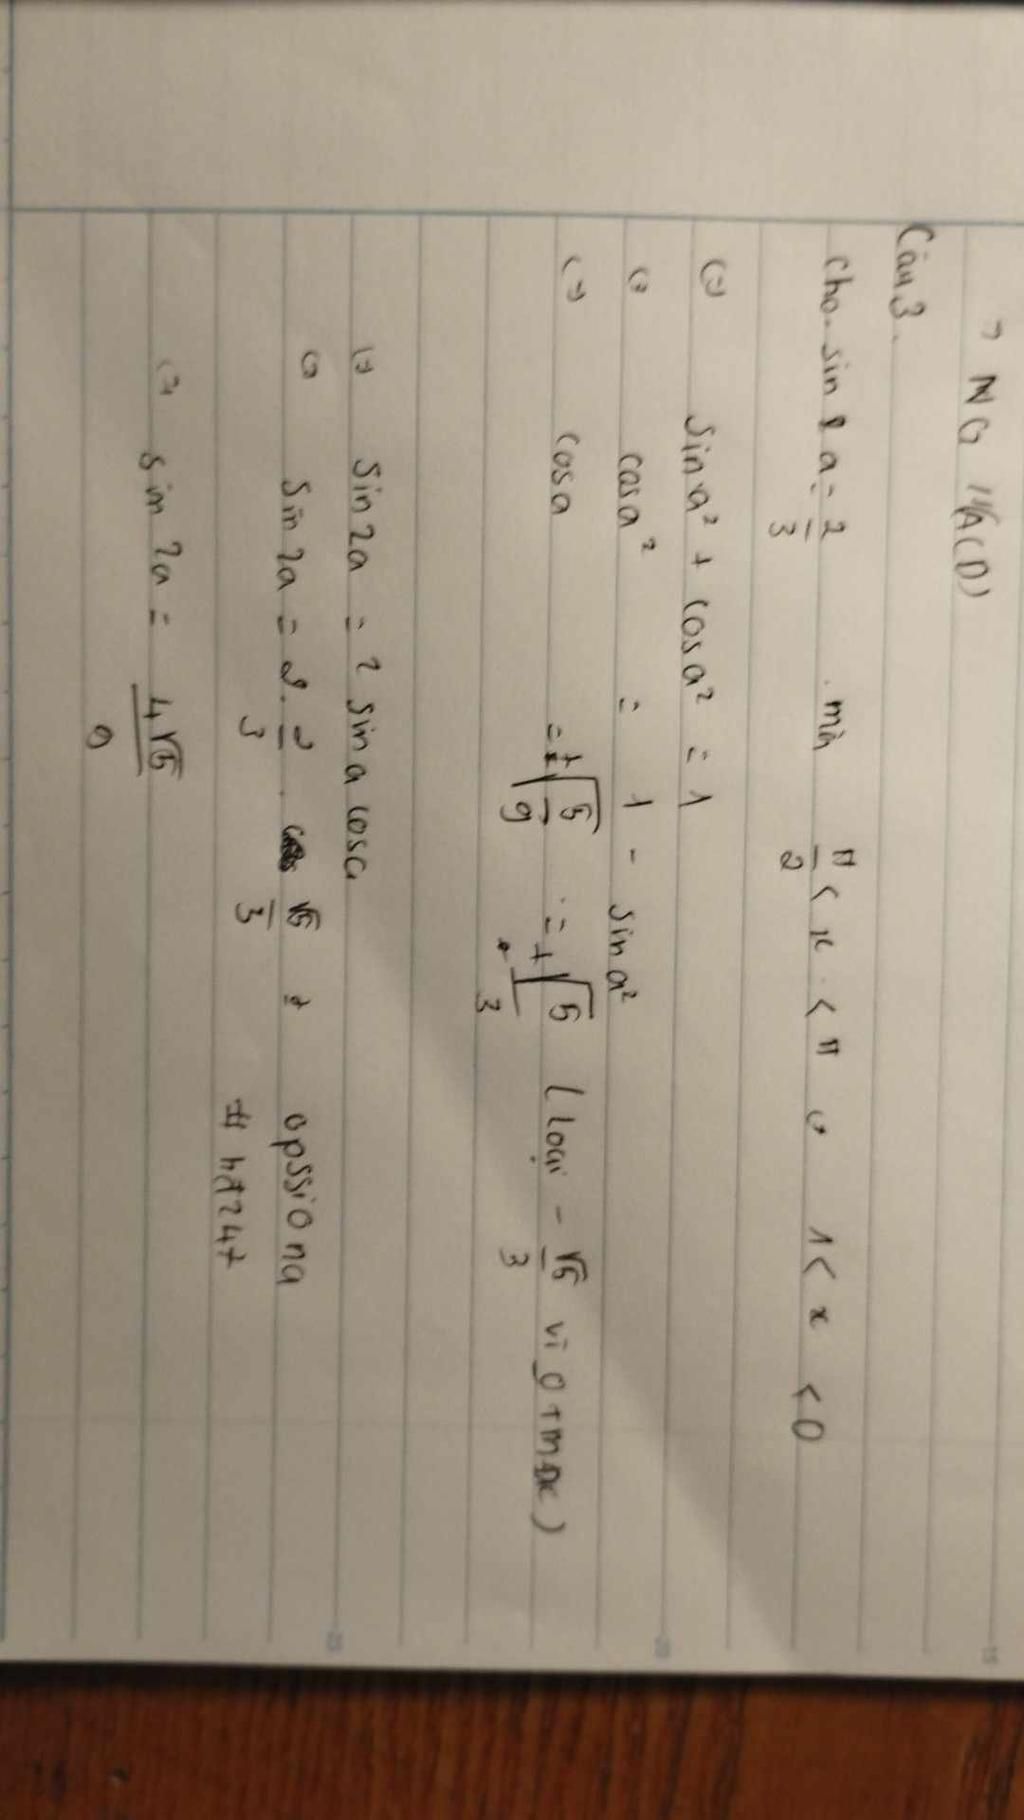 NG //(ACD)
Câu 3.
Cho sin a = 2/3 . mà π/2 < x < π 1 < x < 0
(=) sin a² + cos a² = 1
(=) cos a² = 1 - sin a²
(=) cos a = ±√(5/9) = ±√5/3 (loại -√5/3 vì 0
(=) sin 2a = 2 sin a cos a
(=) sin 2a = 2 . 2/3 . √5/3 opssiona
# hd247
(=) sin 2a = 4√5/9